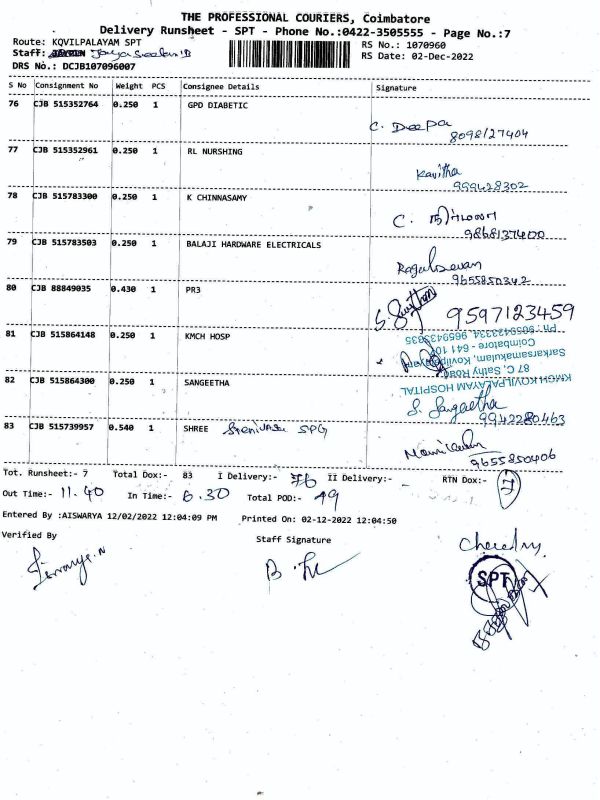 THE PROFESSIONAL COURIERS, Coimbatore
Delivery Runsheet - SPT - Phone No.:0422-3505555 - Page No.:7
Route: KQVILPALAYAM SPT
RS No.: 1070960
Staff:
RS Date: 02-Dec-2022
DRS No.: DCJB107096007
S No Consignment No Weight PCS Consignee Details Signature
76 CJB 515352764 0.250 1 GPD DIABETIC
C. Deepa
8098127404
77 CJB 515352961 0.250 1 RL NURSHING
Kavitha
999428302
78 CJB 515783300 0.250 1 K CHINNASAMY
C.
9868137400
79 CJB 515783503 0.250 1 BALAJI HARDWARE ELECTRICALS
9655850342
80 CJB 88849035 0.430 1 PR3
9597123459
81 CJB 515864148 0.250 1 KMCH HOSP
KMCH KOVILPALAYAM HOSPITAL
87, C, Sathy Road
Sarkarsamakulam, Kovilpalayam
Coimbatore - 641 107
PH : 9659423334, 9659433635
82 CJB 515864300 0.250 1 SANGEETHA
S. Sangeetha
9942280463
83 CJB 515739957 0.540 1 SHREE Srenivasa SPG
9655850406
Tot. Runsheet:- 7 Total Dox:- 83 I Delivery:- 76 II Delivery:- RTN Dox:- 7
Out Time:- 11.40 In Time:- 6.30 Total POD:- 79
Entered By :AISWARYA 12/02/2022 12:04:09 PM Printed On: 02-12-2022 12:04:50
Verified By
Staff Signature
SPT